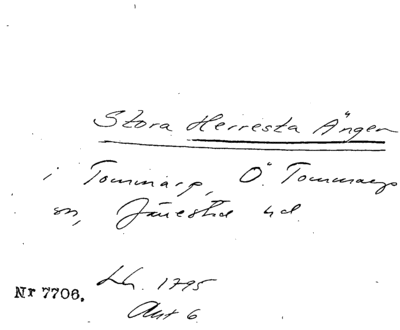 Stora Herresta Ängen
i Tommarp, Ö. Tommarps
sn, Järrestad hd.
Lh. 1795
Nr 7706.
Akt 6